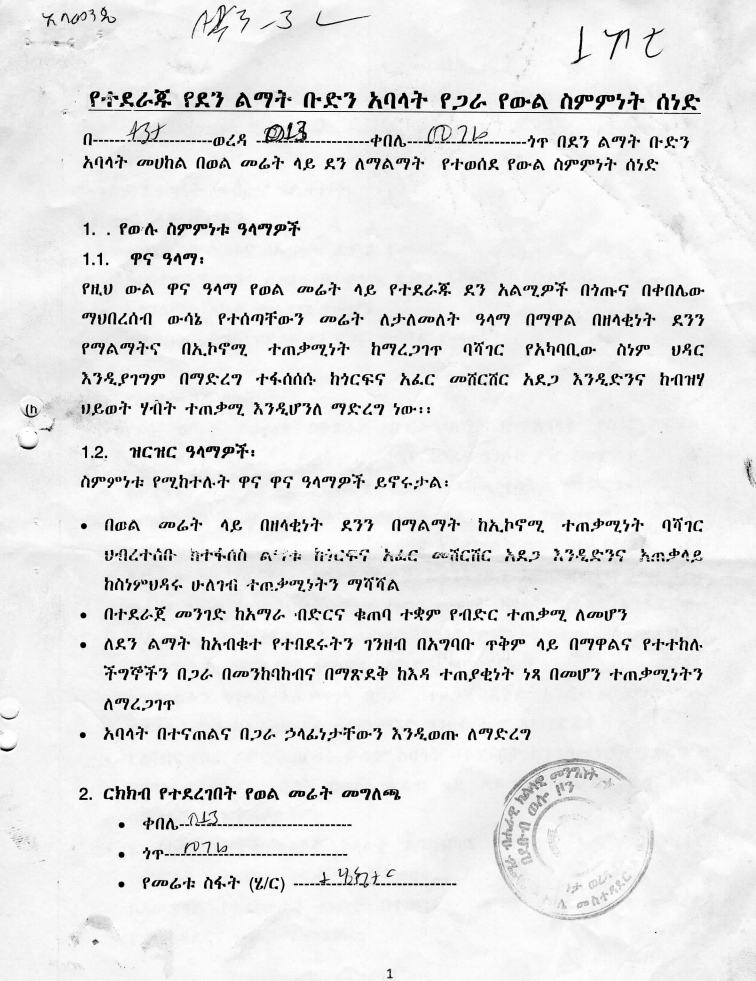 የተደራጁ የደን ልማት ቡድን አባላት የጋራ የውል ስምምነት ሰነድ
በ---------ወረዳ ---------ቀበሌ---------ጎጥ በደን ልማት ቡድን
አባላት መሀከል በወል መሬት ላይ ደን ለማልማት የተወሰደ የውል ስምምነት ሰነድ
1. . የውሉ ስምምነቱ ዓላማዎች
1.1. ዋና ዓላማ፡
የዚህ ውል ዋና ዓላማ የወል መሬት ላይ የተደራጁ ደን አልሚዎች በጎጡና በቀበሌው
ማህበረሰብ ውሳኔ የተሰጣቸውን መሬት ለታለመለት ዓላማ በማዋል በዘላቂነት ደንን
የማልማትና በኢኮኖሚ ተጠቃሚነት ከማረጋገጥ ባሻገር የአካባቢው ስነም ህዳር
እንዲያገግም በማድረግ ተፋሰሰሱ ከጎርፍና አፈር መሸርሸር አደጋ እንዲድንና ከብዝሃ
ህይወት ሃብት ተጠቃሚ እንዲሆንለ ማድረግ ነው፡፡
1.2. ዝርዝር ዓላማዎች፡
ስምምነቱ የሚከተሉት ዋና ዋና ዓላማዎች ይኖሩታል፡
• በወል መሬት ላይ በዘላቂነት ደንን በማልማት ከኢኮኖሚ ተጠቃሚነት ባሻገር
ህብረተሰቡ ከተፋሰስ ልማቱ ከጎርፍና አፈር መሸርሸር አደጋ እንዲድንና አጠቃላይ
ከስነምህዳሩ ሁለገብ ተጠቃሚነትን ማሻሻል
• በተደራጀ መንገድ ከአማራ ብድርና ቁጠባ ተቋም የብድር ተጠቃሚ ለመሆን
• ለደን ልማት ከአብቁተ የተበደሩትን ገንዘብ በአግባቡ ጥቅም ላይ በማዋልና የተተከሉ
ችግኞችን በጋራ በመንከባከብና በማጽደቅ ከእዳ ተጠያቂነት ነጻ በመሆን ተጠቃሚነትን
ለማረጋገጥ
• አባላት በተናጠልና በጋራ ኃላፊነታቸውን እንዲወጡ ለማድረግ
2. ርክክብ የተደረገበት የወል መሬት መግለጫ
• ቀበሌ---------
• ጎጥ---------
• የመሬቱ ስፋት (ሄ/ር) ---------
1